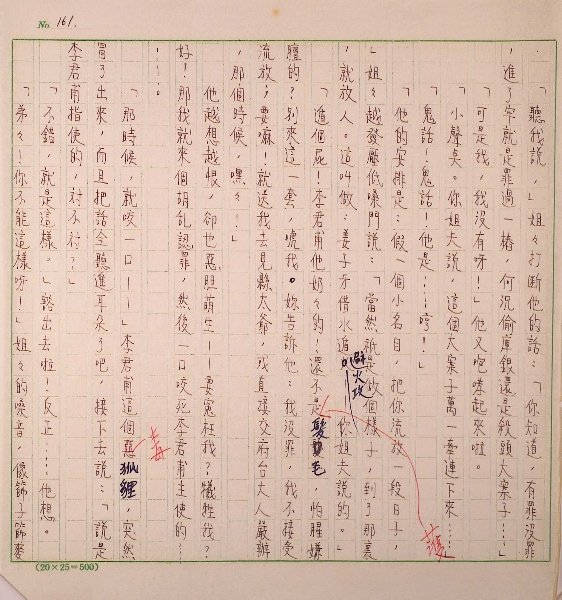 No. 161.
「聽我說——」姐々打斷他的話：「你知道，有罪沒罪
，進了牢就是罪過一樁，何況偷庫銀還是殺頭大案子……」
「可是我，我沒有呀！」他又咆哮起來啦。
「小聲矣。你姐夫說，這個大案子萬一牽連下來……
「鬼話！鬼話！他是……哼！」
「他的安排是：假一個小名目，把你流放一段日子，
」姐々越發嚴低嗓門說：「當然祇是做個樣子，到了那裏
，就放人。這叫做：姜子牙借水遁避火攻——你姐夫說的。」
「遁個屁！李君甫他奶々的！還不是髮雙毛護，怕腥嫌
膻的？別來這一套，唬我。妳告訴他：我沒罪，我不接受
流放；要嘛！就送我去見縣太爺，或直接交府台大人嚴辦
，那個時候，嘿々！」
他越想越恨，卻也惡胆萌生——要冤枉我？犧牲我？
好！那我就來個胡亂認罪，然後一口咬死李君甫主使的……
……。
「那時候，就咬一口——」李君甫這個惡毒狐狸，突然
冒了出來，而且把話全聽進耳朵了吧，接下去說：「說是
李君甫指使的，對不對？」
「不錯，就是這樣。」豁出去啦！反正……他想。
「弟々！你不能這樣呀！」姐々的嗓音，像篩子篩麥
(20×25=500)